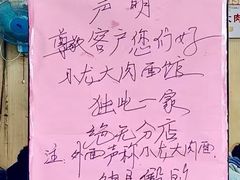 声明
尊敬客户您们好
小龙大肉面馆
独此一家
绝无分店
注:外面声称小龙大肉面